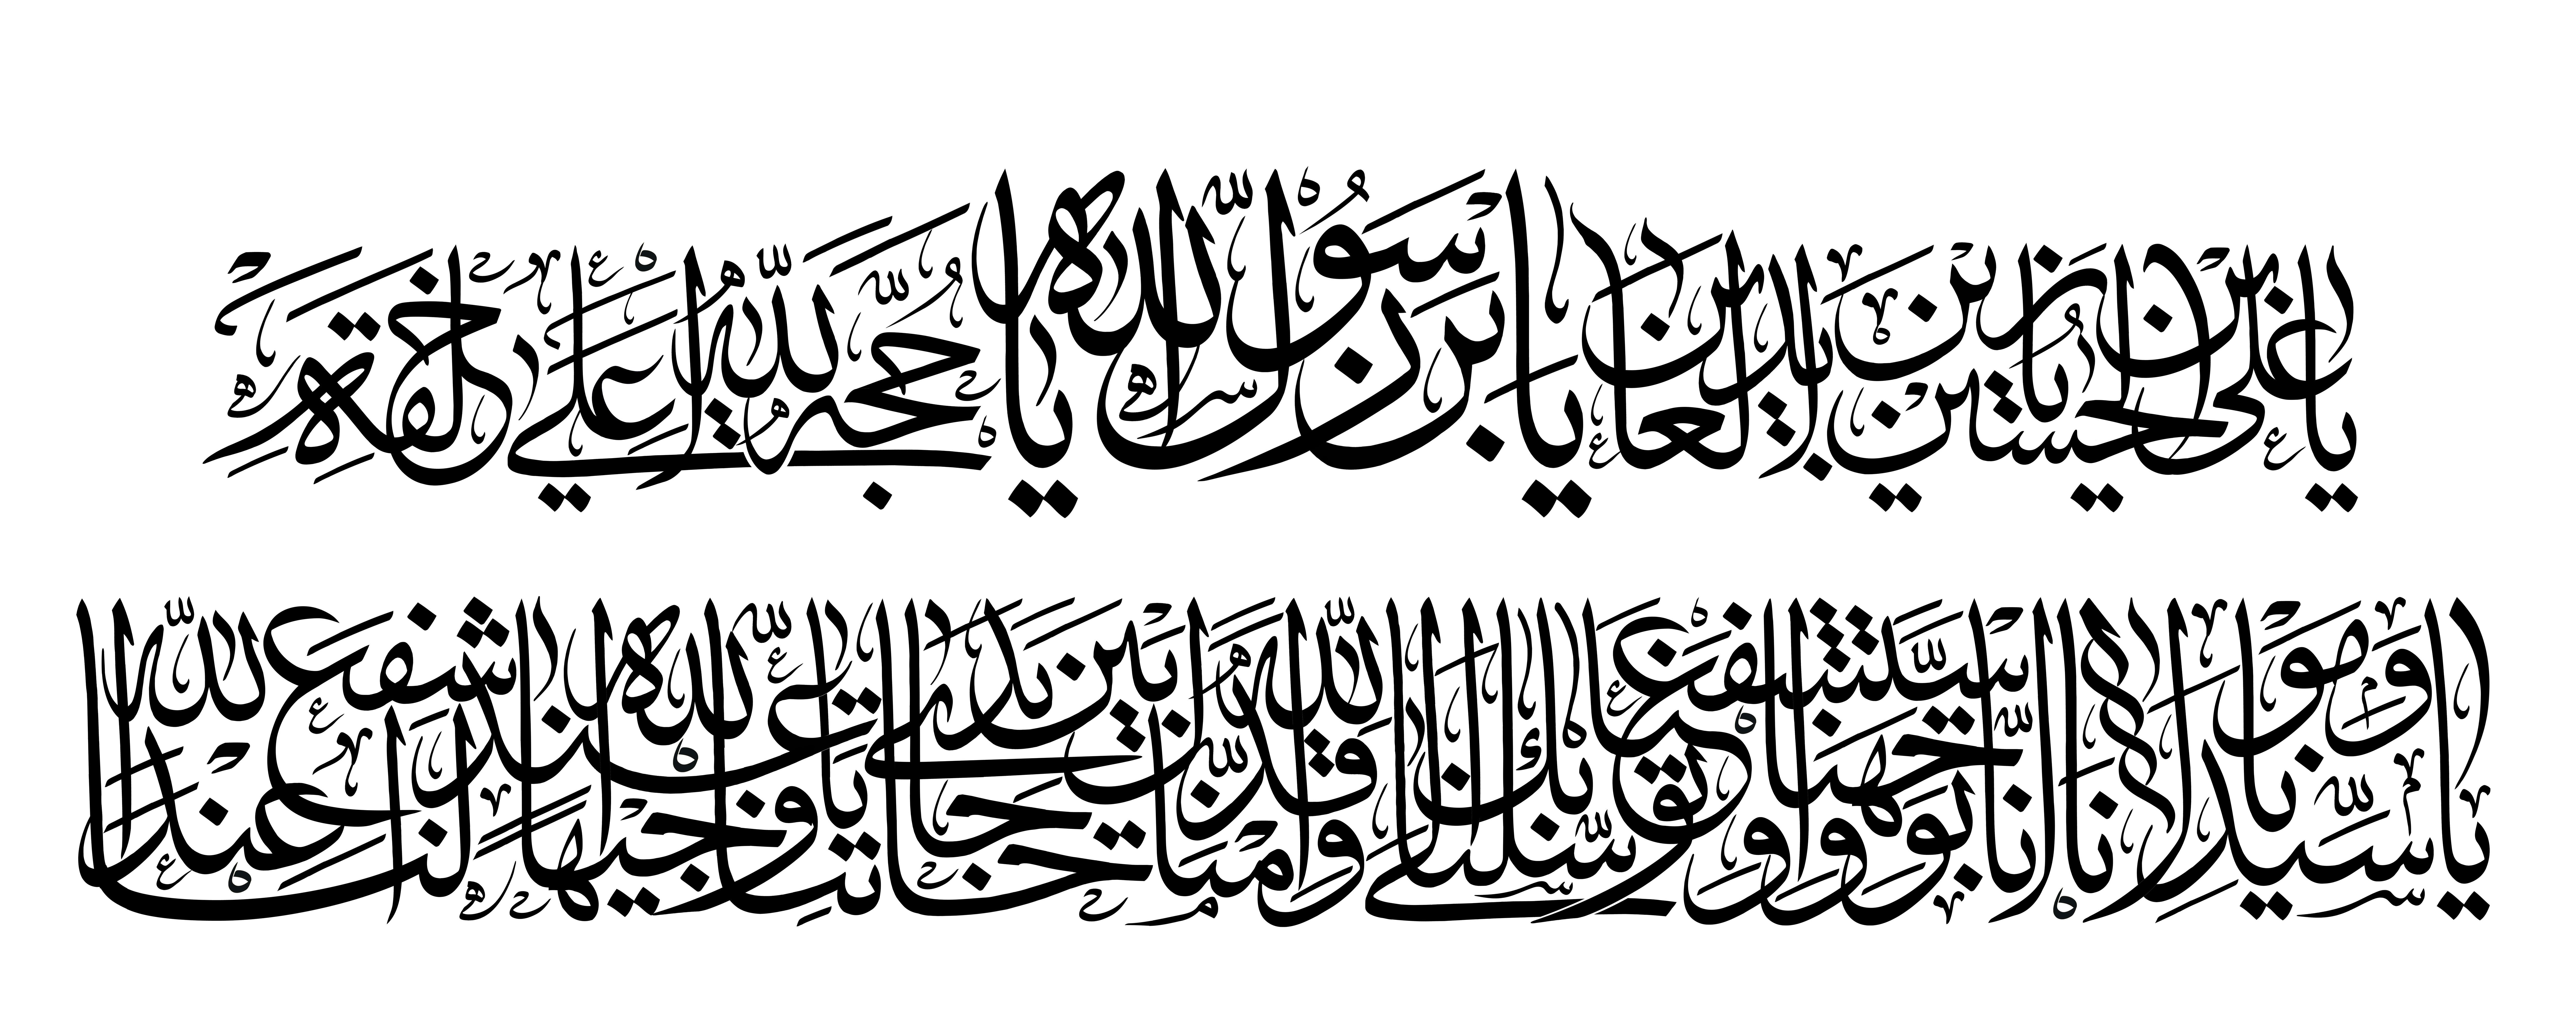 يا علي بن الحسين يا زين العابدين يا بن رسول الله يا حجة الله على خلقه
يا سيدنا ومولانا إنا توجهنا واستشفعنا وتوسلنا بك إلى الله وقدمناك بين يدي حاجاتنا يا وجيها عند الله اشفع لنا عند الله